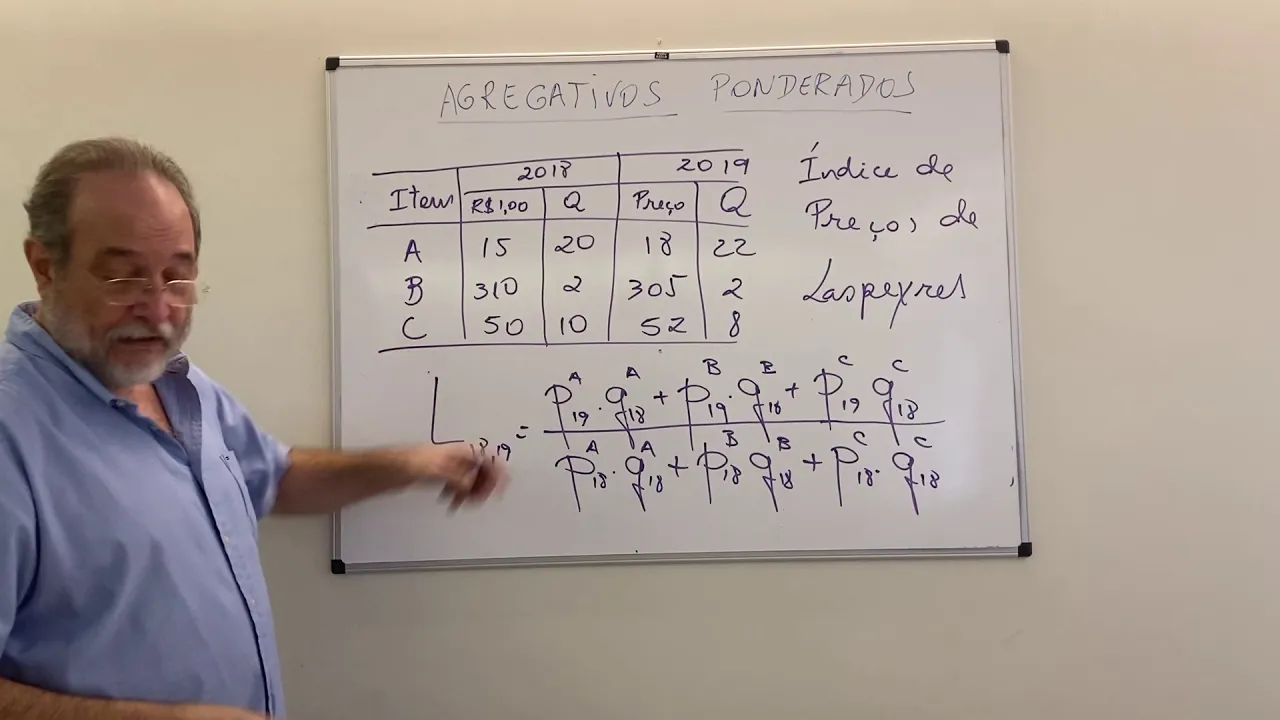 AGREGATIVOS PONDERADOS
2018 2019
Item R$1,00 Q Preço Q
A 15 20 18 22
B 310 2 305 2
C 50 10 52 8
Índice de
Preços de
Laspeyres
L18,19 = p19^A · q18^A + p19^B · q18^B + p19^C q18^C
p18^A · q18^A + p18^B q18^B + p18^C · q18^C